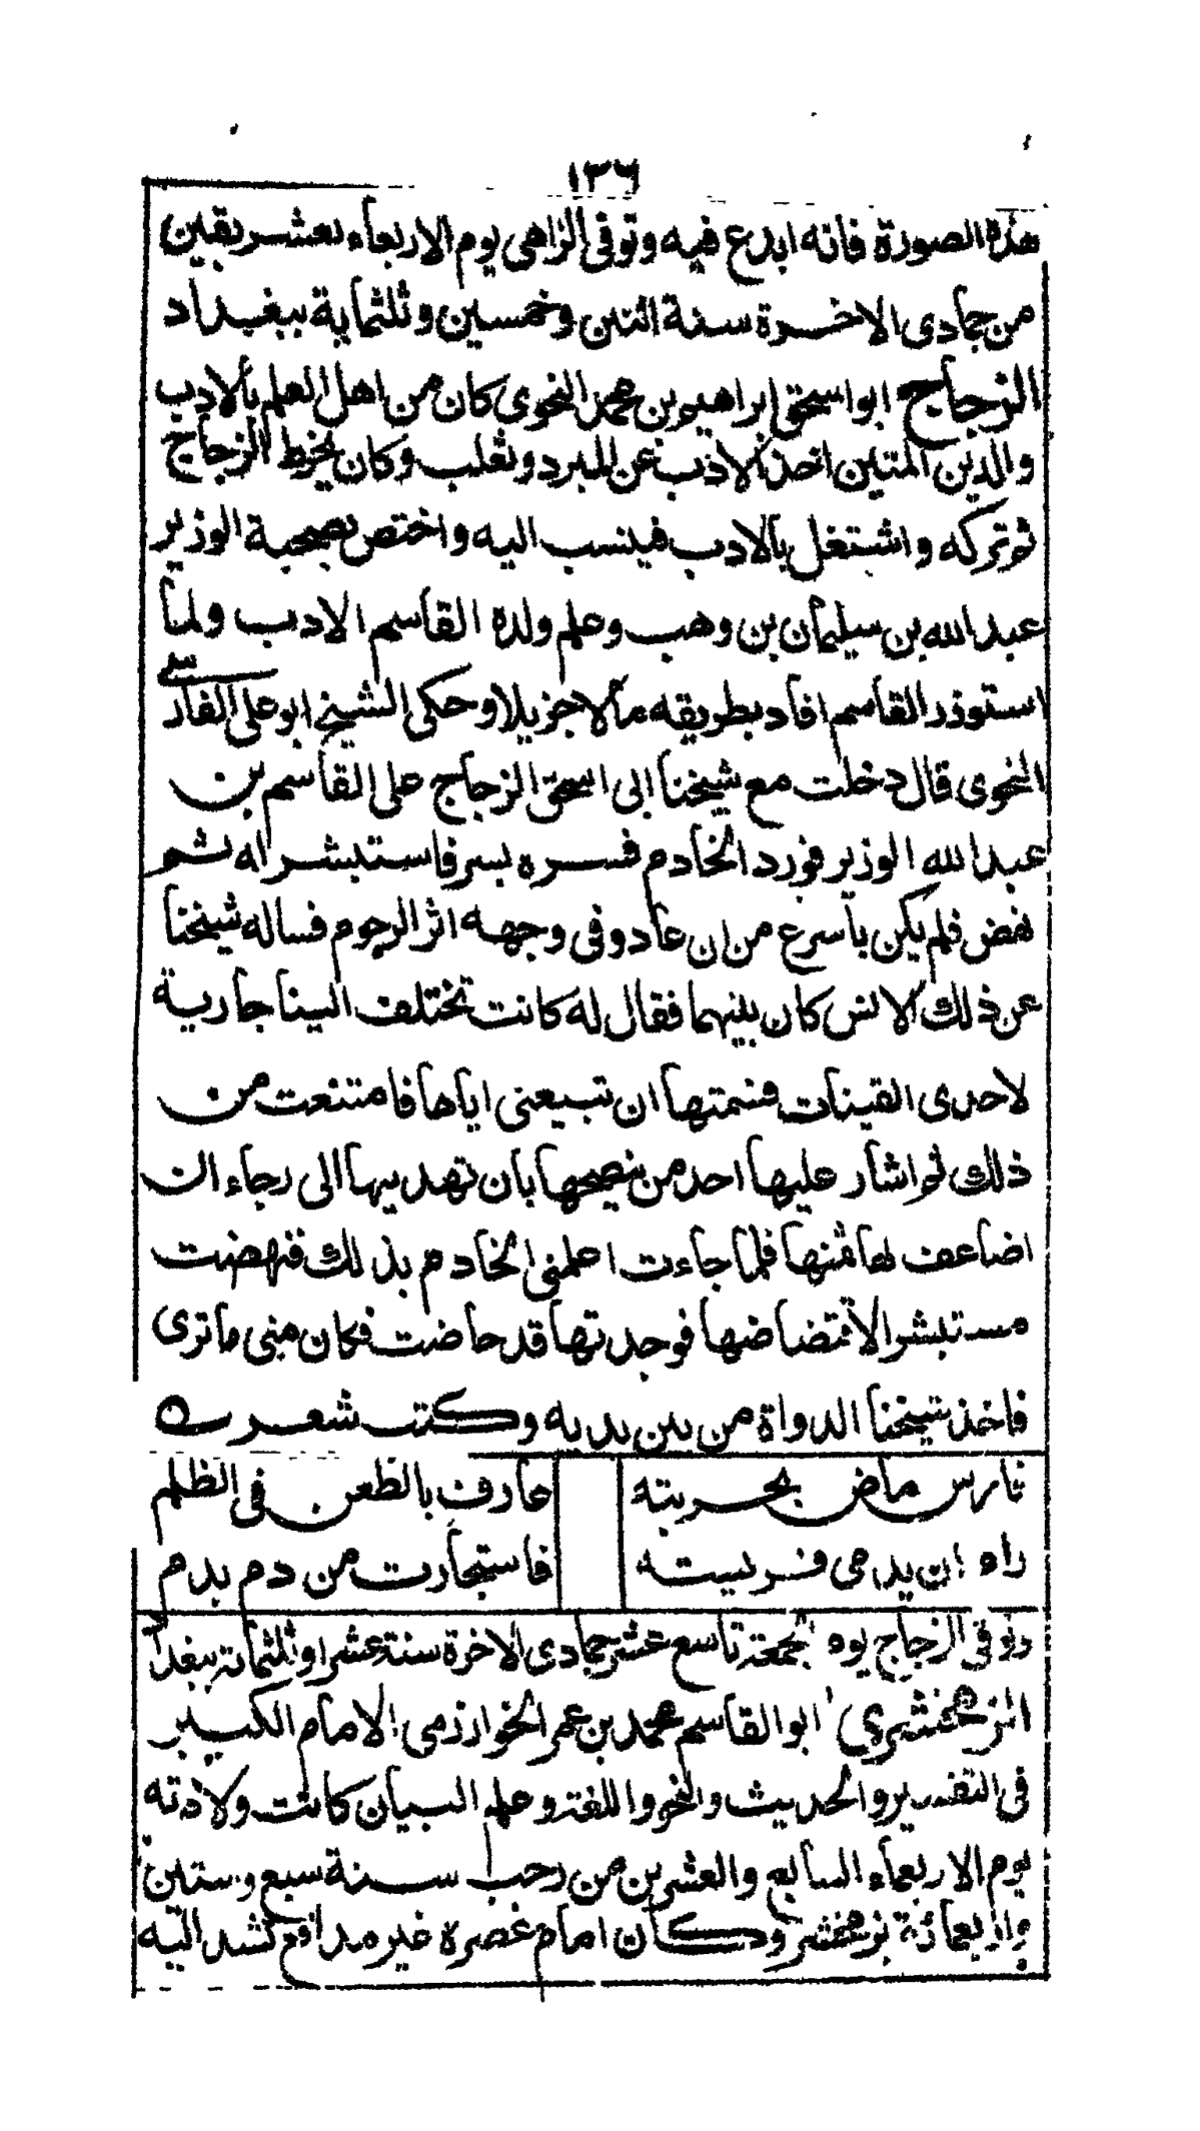 ١٣٦
هذه الصورة فانه ابدع فيه وتوفي الزاهي يوم الاربعاء لعشر بقين
من جمادى الاخرة سنة اثنين وخمسين وثلثماية ببغداد
الزجاج ابو اسحق ابراهيم بن محمد النحوى كان من اهل العلم بالادب
والدين المتين اخذ الادب عن المبرد وثعلب وكان يخرط الزجاج
ثم تركه واشتغل بالادب فينسب اليه واختص بصحبة الوزير
عبد الله بن سليمان بن وهب وعلم ولده القاسم الادب ولما
استوزر القاسم افاد بطريقه مالا جزيلا وحكى الشيخ ابو على الفارسى
النحوى قال دخلت مع شيخنا ابى اسحق الزجاج على القاسم بن
عبد الله الوزير فورد الخادم فسره بسر فاستبشر له ثم
نهض فلم يكن باسرع من ان عاد وفى وجهه اثر الوجوم فساله شيخنا
عن ذلك لانس كان بينهما فقال له كانت تختلف الينا جارية
لاحدى القينات فسمتها ان تبيعنى اياها فامتنعت من
ذلك ثم اشار عليها احد من ينصحها بان تهديها الى رجاء ان
اضاعف لها ثمنها فلما جاءت اعلمنى الخادم بذلك فنهضت
مستبشرا لافتضاضها فوجدتها قد حاضت فكان منى ما ترى
فاخذ شيخنا الدواة من بين يديه وكتب شعر
فارس ماض بحربته عارف بالطعن فى الظلم
راه ان يدمى فريسته فاستجارت من دم بدم
وتوفى الزجاج يوم الجمعة تاسع عشر جمادى الاخرة سنة عشر وثلثمائة ببغداد
الزمخشري ابو القاسم محمد بن عمر الخوارزمى الامام الكبير
فى التفسير والحديث والنحو واللغة وعلم البيان كانت ولادته
يوم الاربعاء السابع والعشرين من رجب سنة سبع وستين
واربعمائة بزمخشر وكان امام عصره غير مدافع تشد اليه